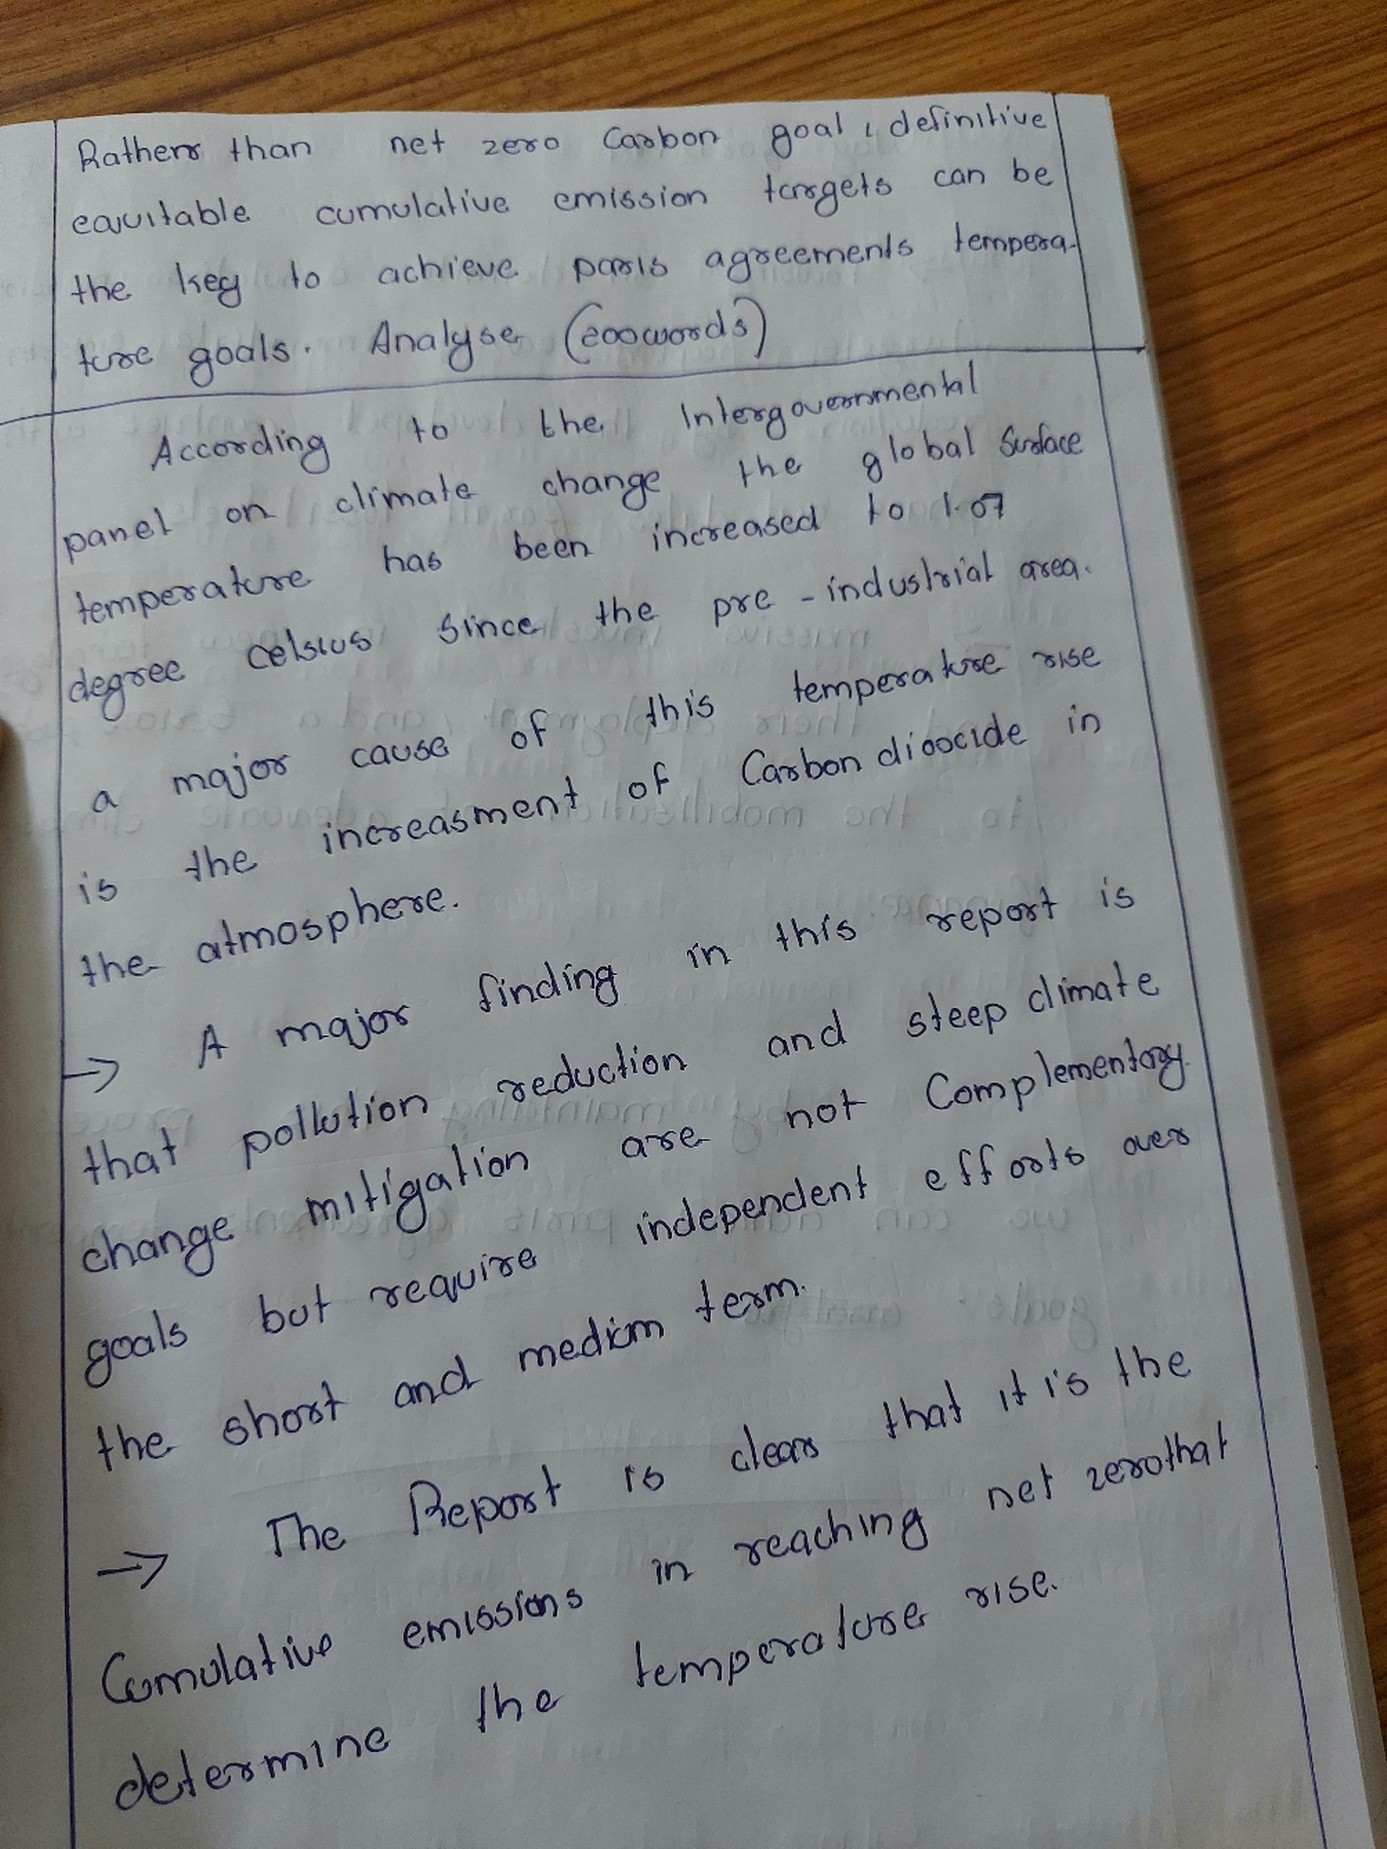 Rather than net zero Carbon goal, definitive
equitable cumulative emission targets can be
the key to achieve paris agreements tempera-
ture goals. Analyse (200words)
According to the Intergovernmental
panel on climate change the global surface
temperature has been increased to 1.07
degree celsius since the pre-industrial area.
a major cause of this temperature rise
is the increasment of Carbon dioocide in
the atmosphere.
→ A major finding in this report is
that pollution reduction and steep climate
change mitigation are not Complementory
goals but require independent efforts over
the short and medium term.
→ The Report is clear that it is the
Cumulative emissions in reaching net zero that
determine the temperature rise.